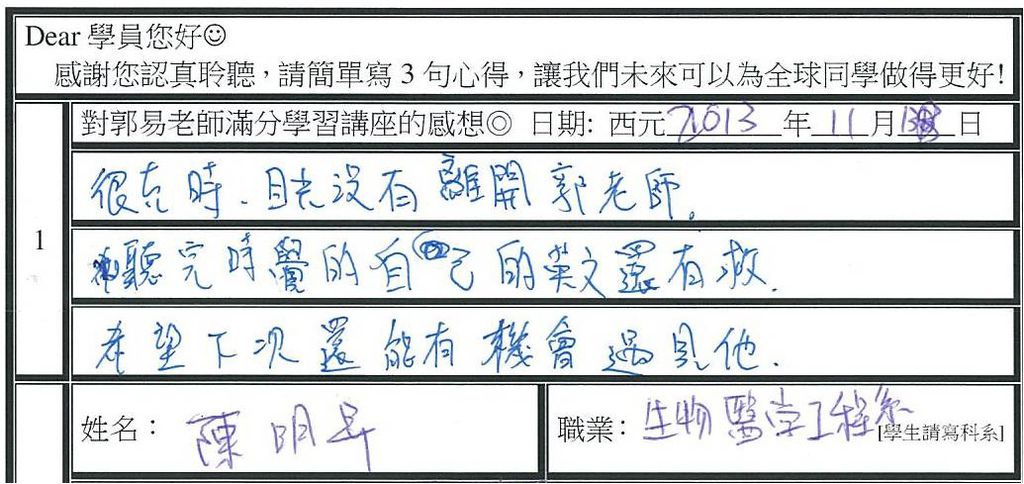 Dear 學員您好☺
感謝您認真聆聽，請簡單寫 3 句心得，讓我們未來可以為全球同學做得更好!
1
對郭易老師滿分學習講座的感想◎ 日期: 西元 2013 年 11 月 13 日
很在時、目光沒有離開郭老師。
聽完時覺的自己的英文還有救.
希望下次還能有機會遇見他.
姓名： 陳明昇
職業： 生物醫学工程系 [學生請寫科系]